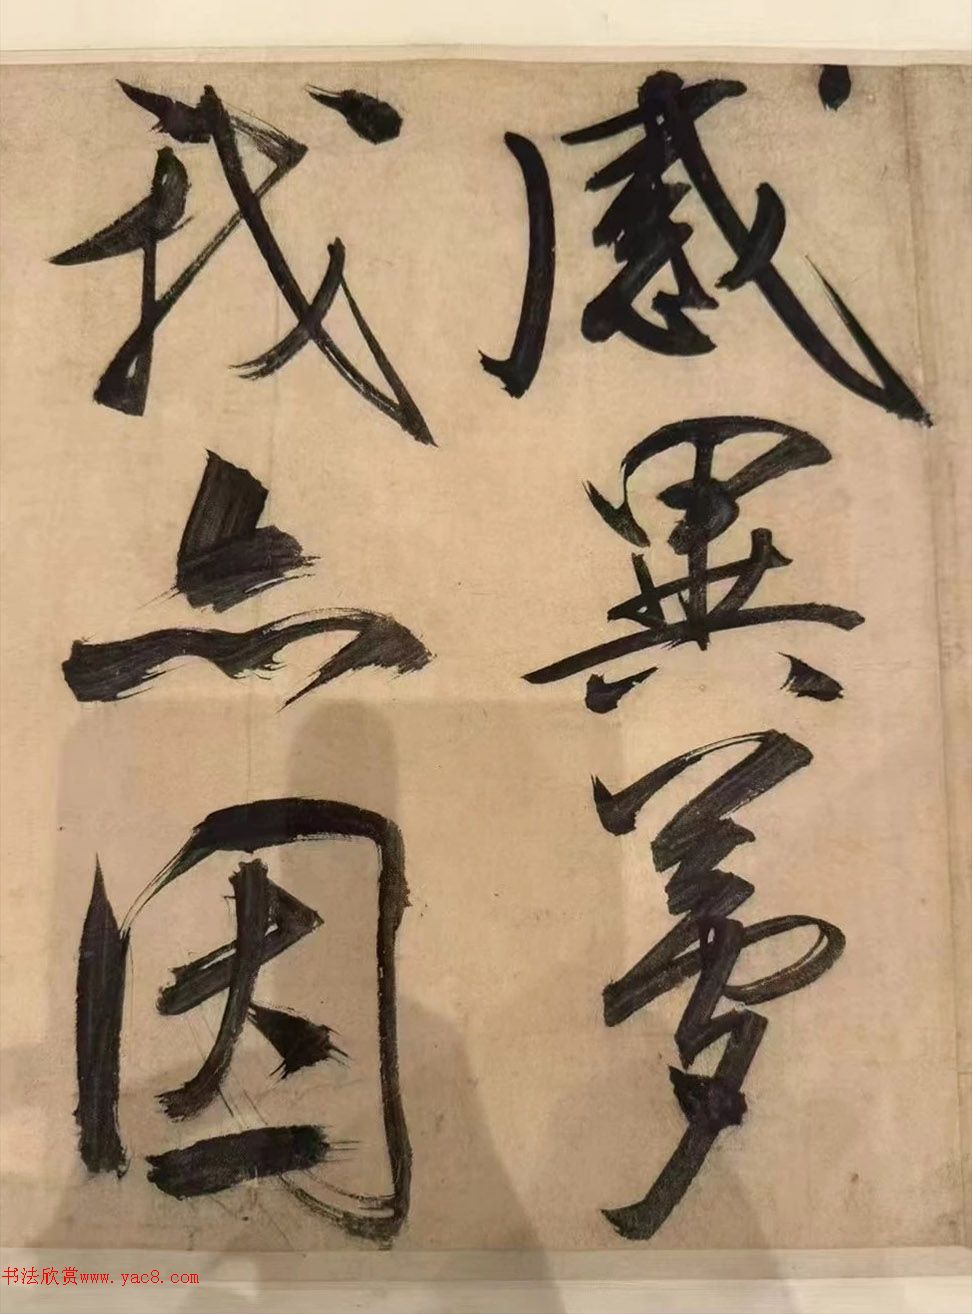 感異夢
我亦因
书法欣赏www.yac8.com